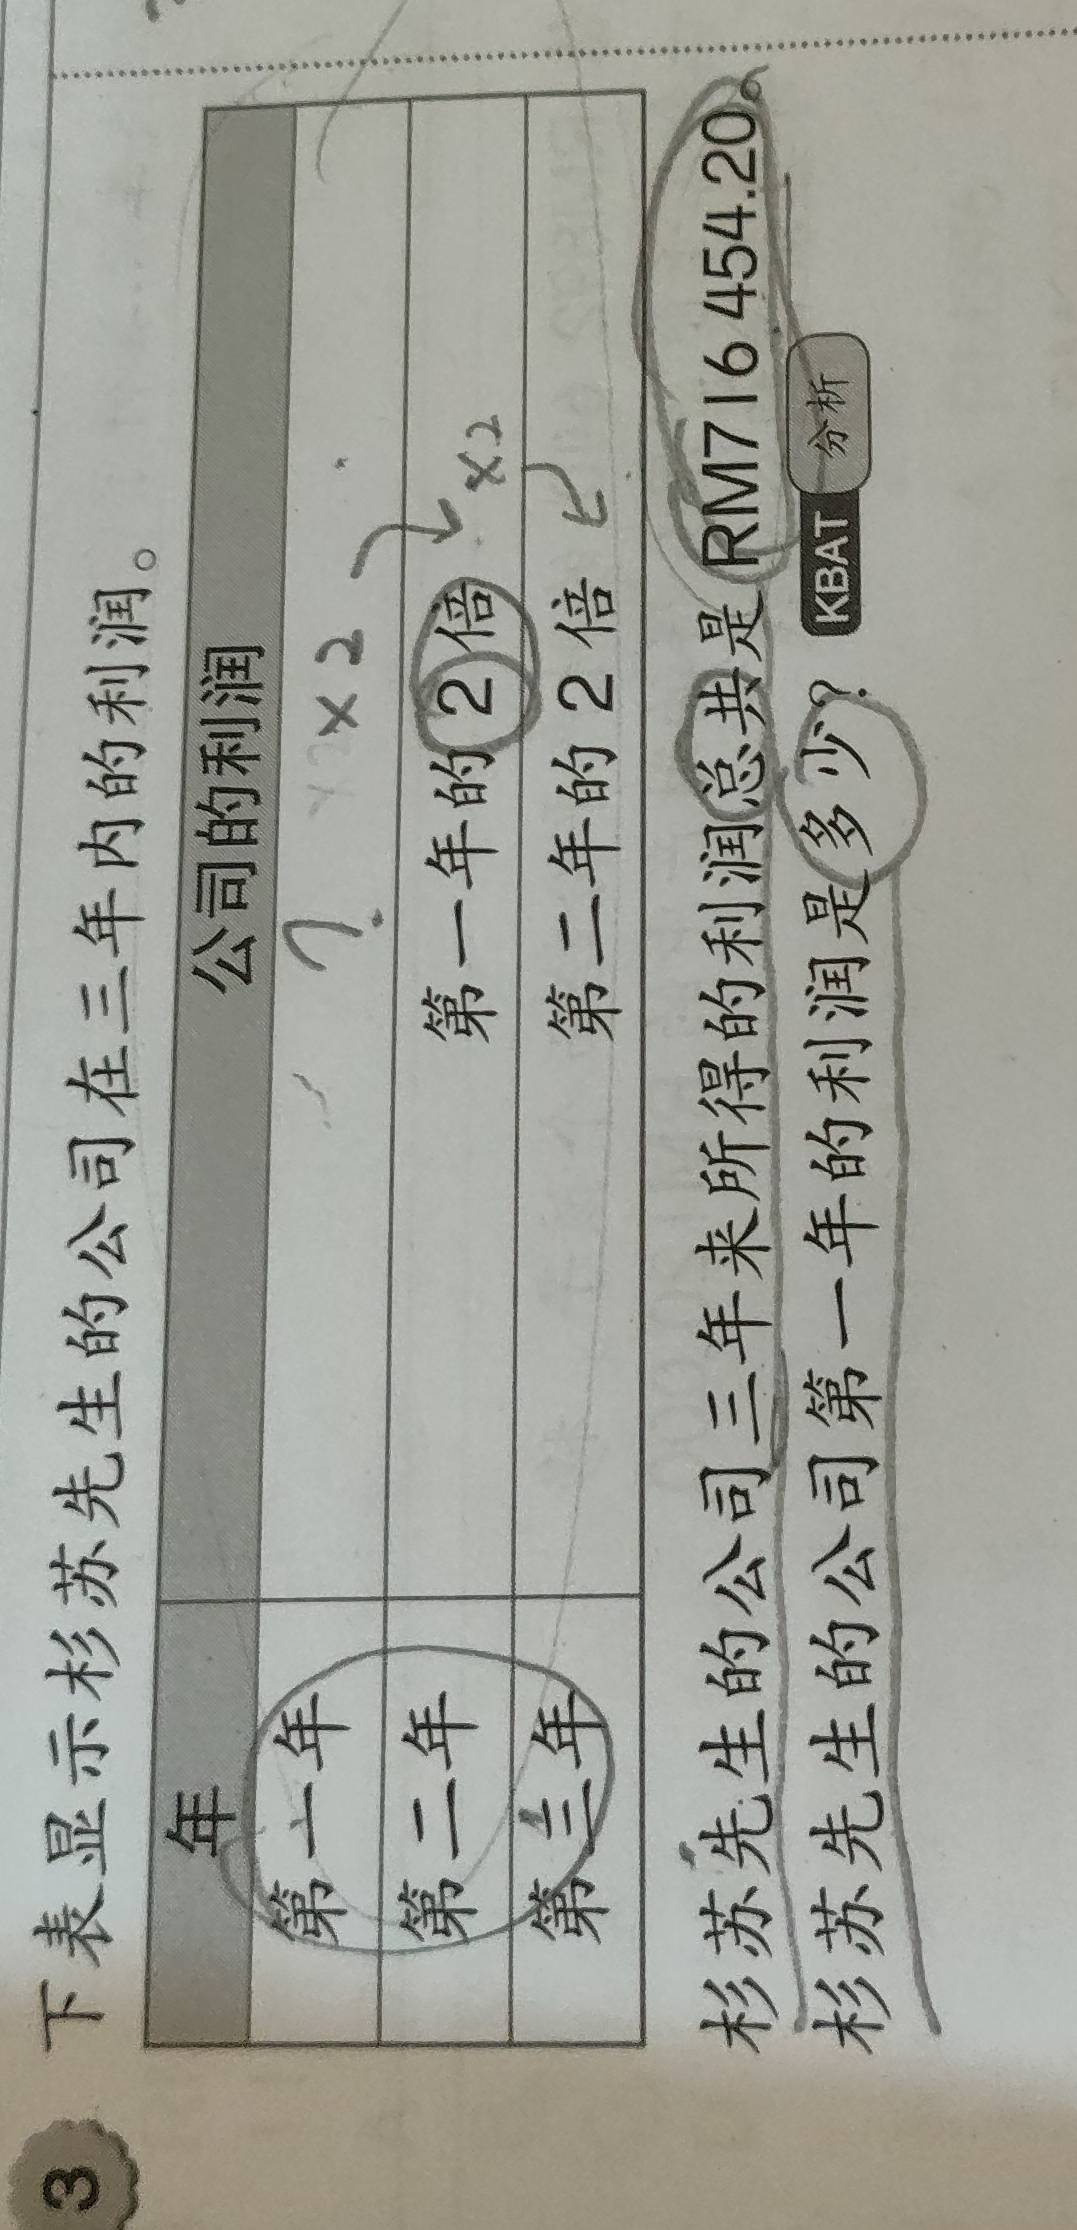 3
下表显示杉苏先生的公司在三年内的利润。
年 公司的利润
第一年 ? ×2
第二年 第一年的2倍 ×2
第三年 第二年的2倍
杉苏先生的公司三年来所得的利润总共是RM716 454.20。
杉苏先生的公司第一年的利润是多少? KBAT 分析